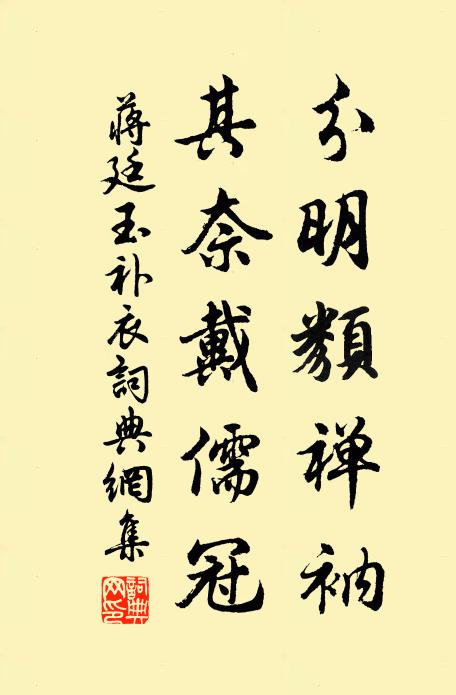 分明類禅衲
其奈戴儒冠
蔣廷玉补衣詞典網集
詞典网印